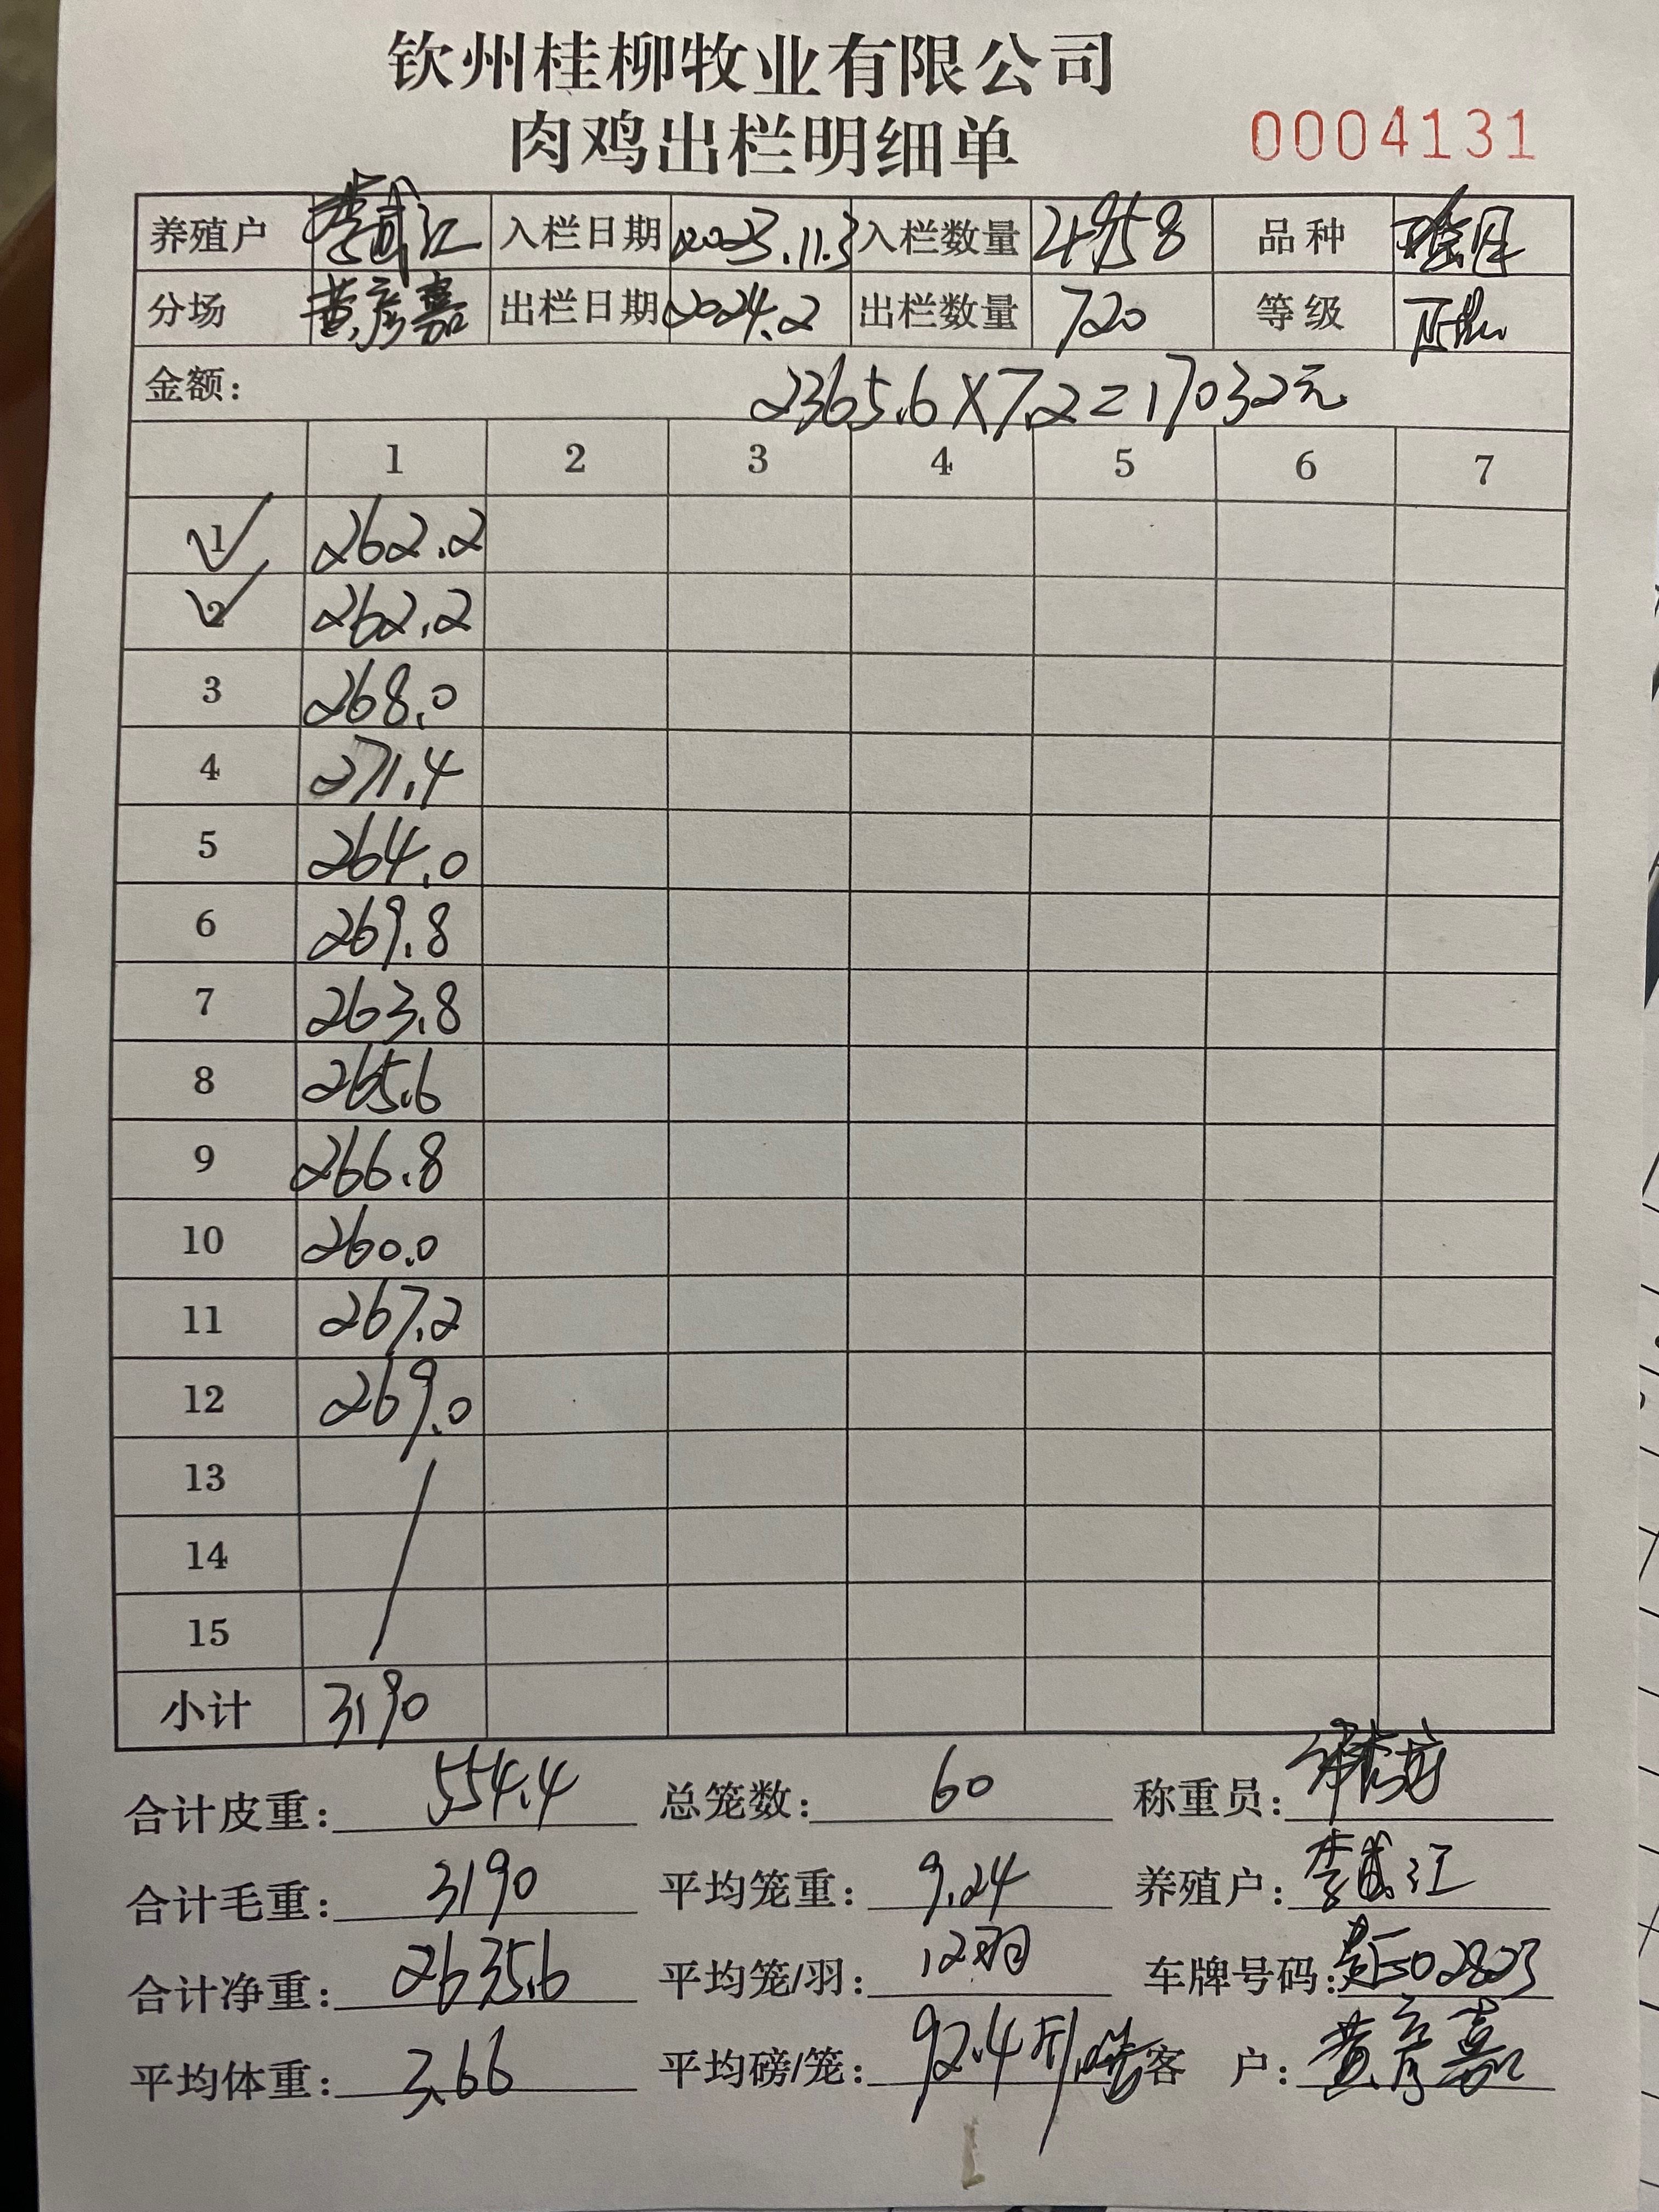 钦州桂柳牧业有限公司
肉鸡出栏明细单
0004131
养殖户 入栏日期 2023.11.3 入栏数量 4958 品种
分场 黄彦嘉 出栏日期 2024.2 出栏数量 720 等级
金额: 2365.6X7.2=17032元
1 2 3 4 5 6 7
1 262.2
2 262.2
3 268.0
4 271.4
5 264.0
6 269.8
7 263.8
8 265.6
9 266.8
10 260.0
11 267.2
12 269.0
13
14
15
小计 3190
合计皮重: 554.4 总笼数: 60 称重员:
合计毛重: 3190 平均笼重: 9.24 养殖户:
合计净重: 2635.6 平均笼/羽: 12羽 车牌号码: 02823
平均体重: 3.66 平均磅/笼: 92.4斤 客 户: 黄彦嘉